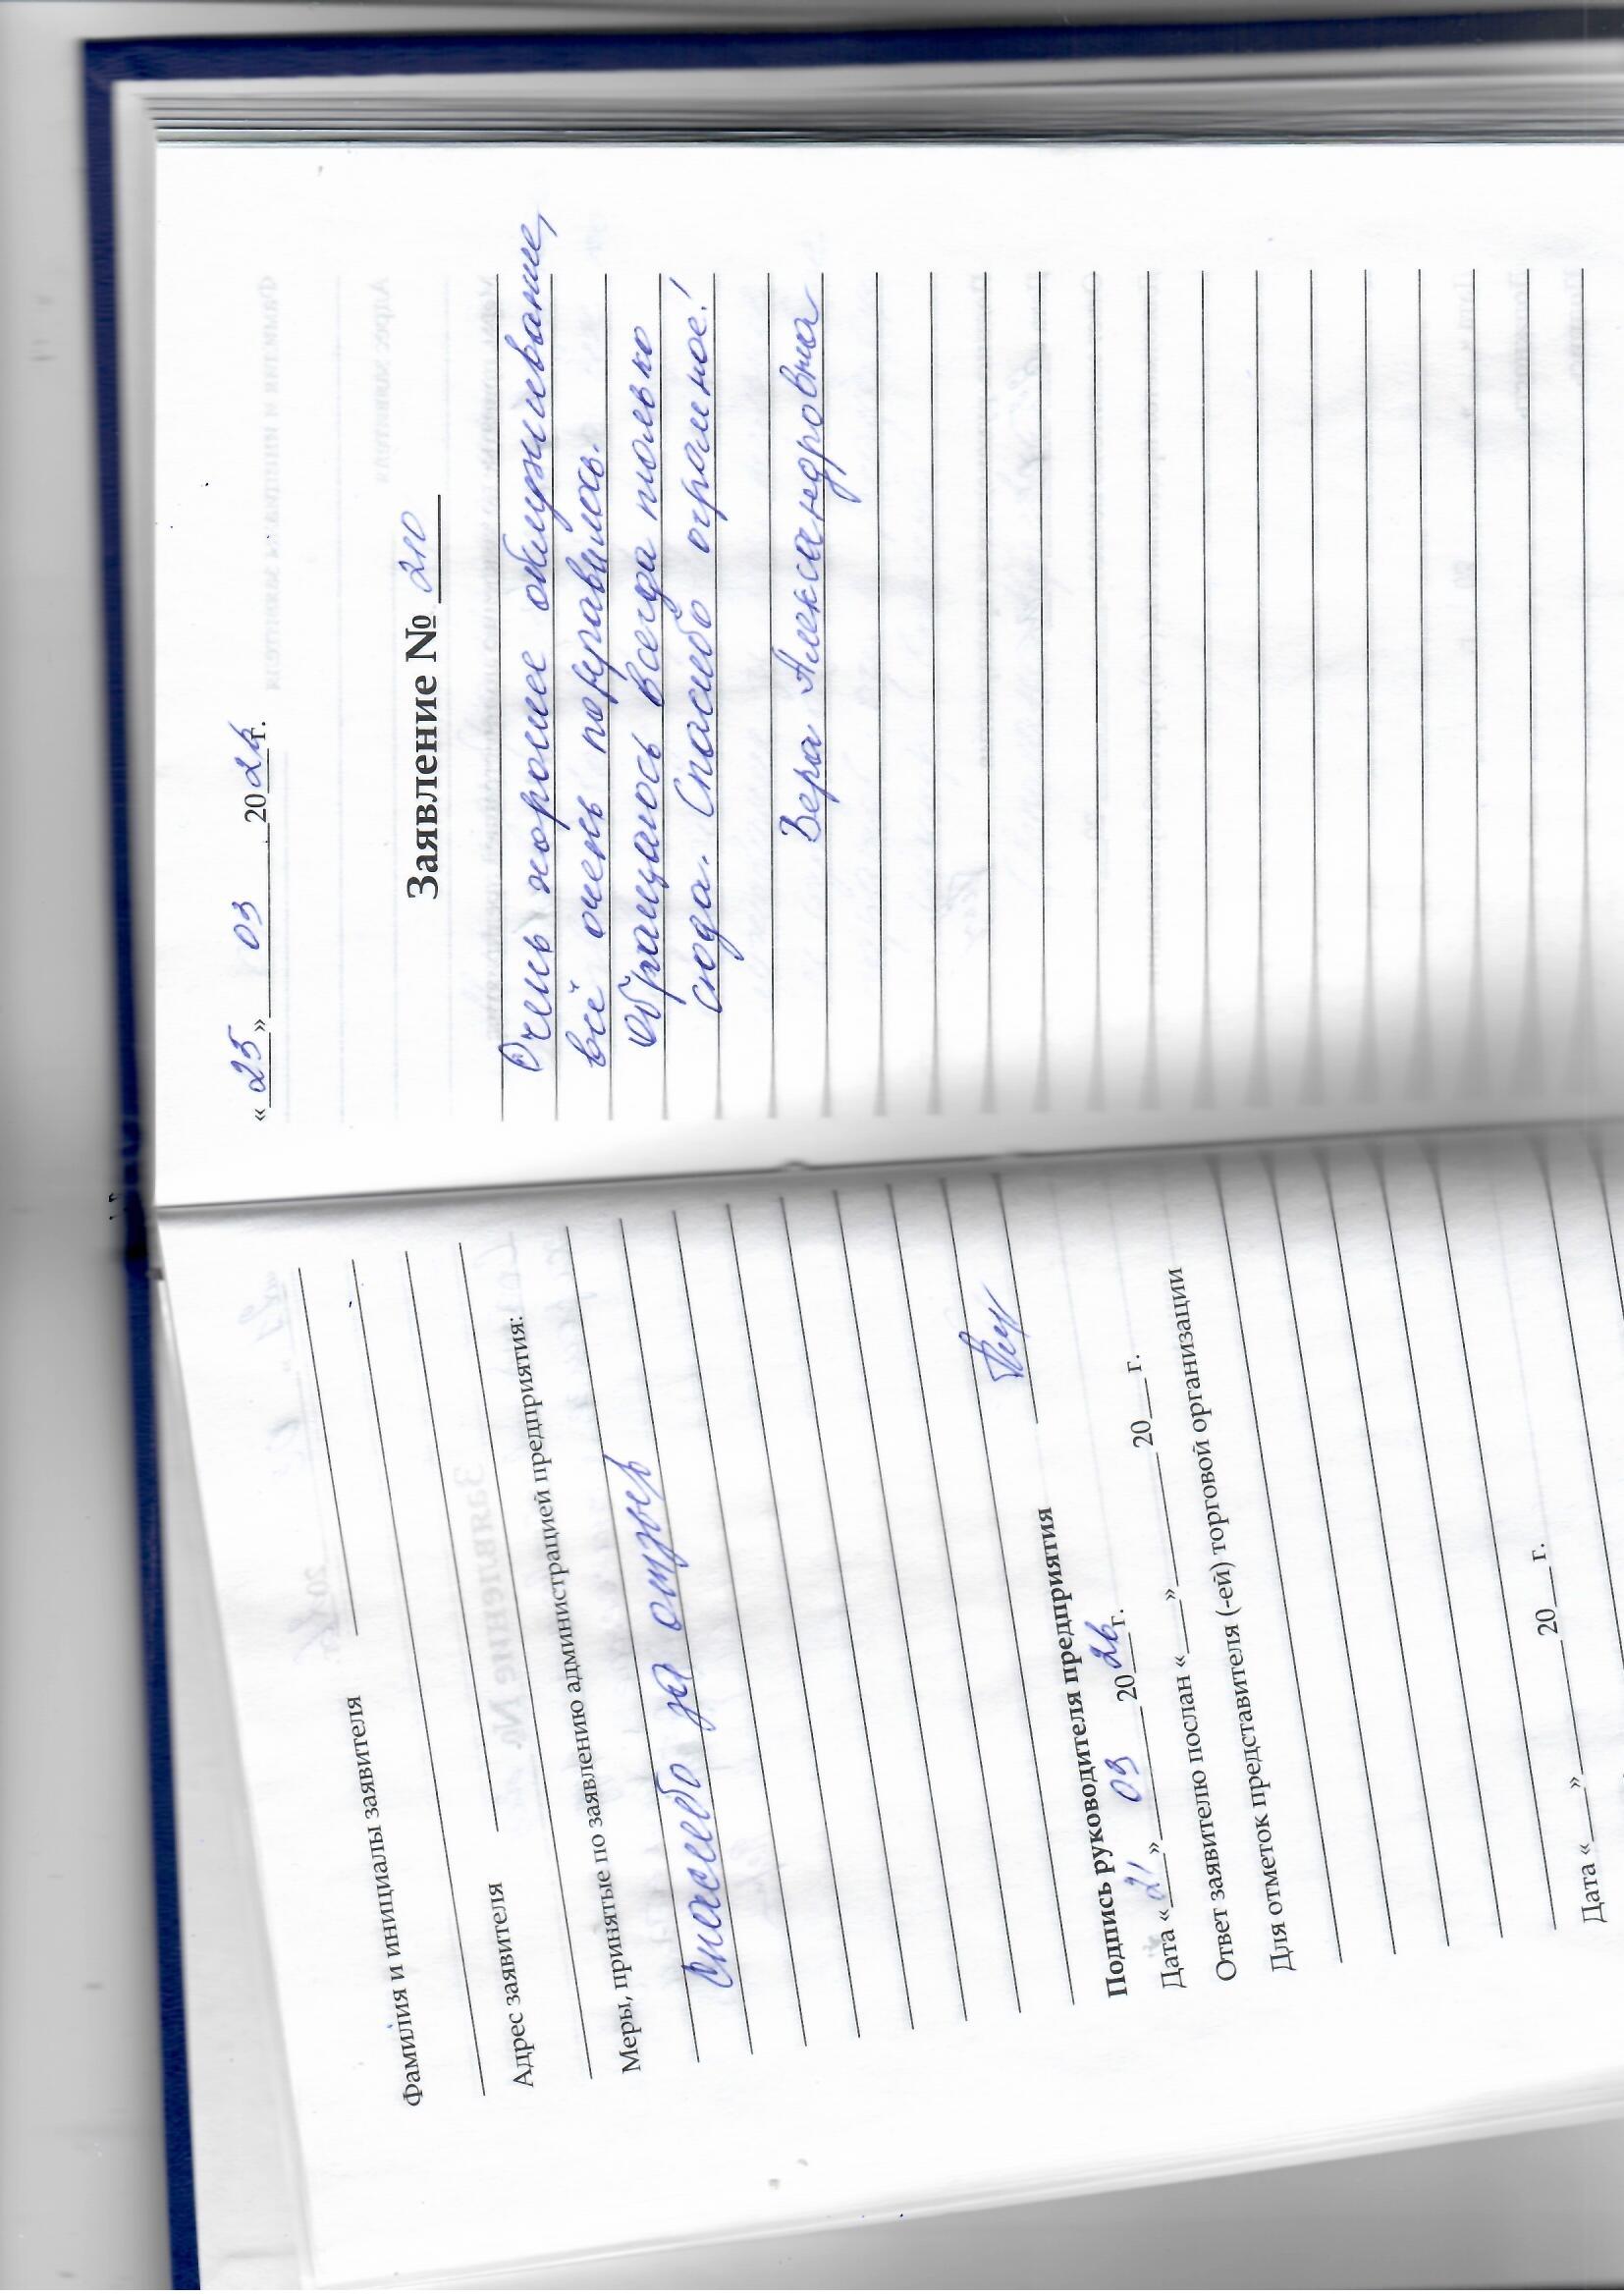 Фамилия и инициалы заявителя
Адрес заявителя
Меры, принятые по заявлению администрацией предприятия:
Спасибо за отзыв
Подпись руководителя предприятия
Дата «21» 03 2026 г.
Ответ заявителю послан «___» 20___г.
Для отметок представителя (-ей) торговой организации
Дата «___» 20___г.
«25» 03 2026 г.
Заявление № 210
Очень хорошее обслуживание,
всё очень понравилось.
Обращаюсь всегда только
сюда. Спасибо огромное!
Вера Александровна